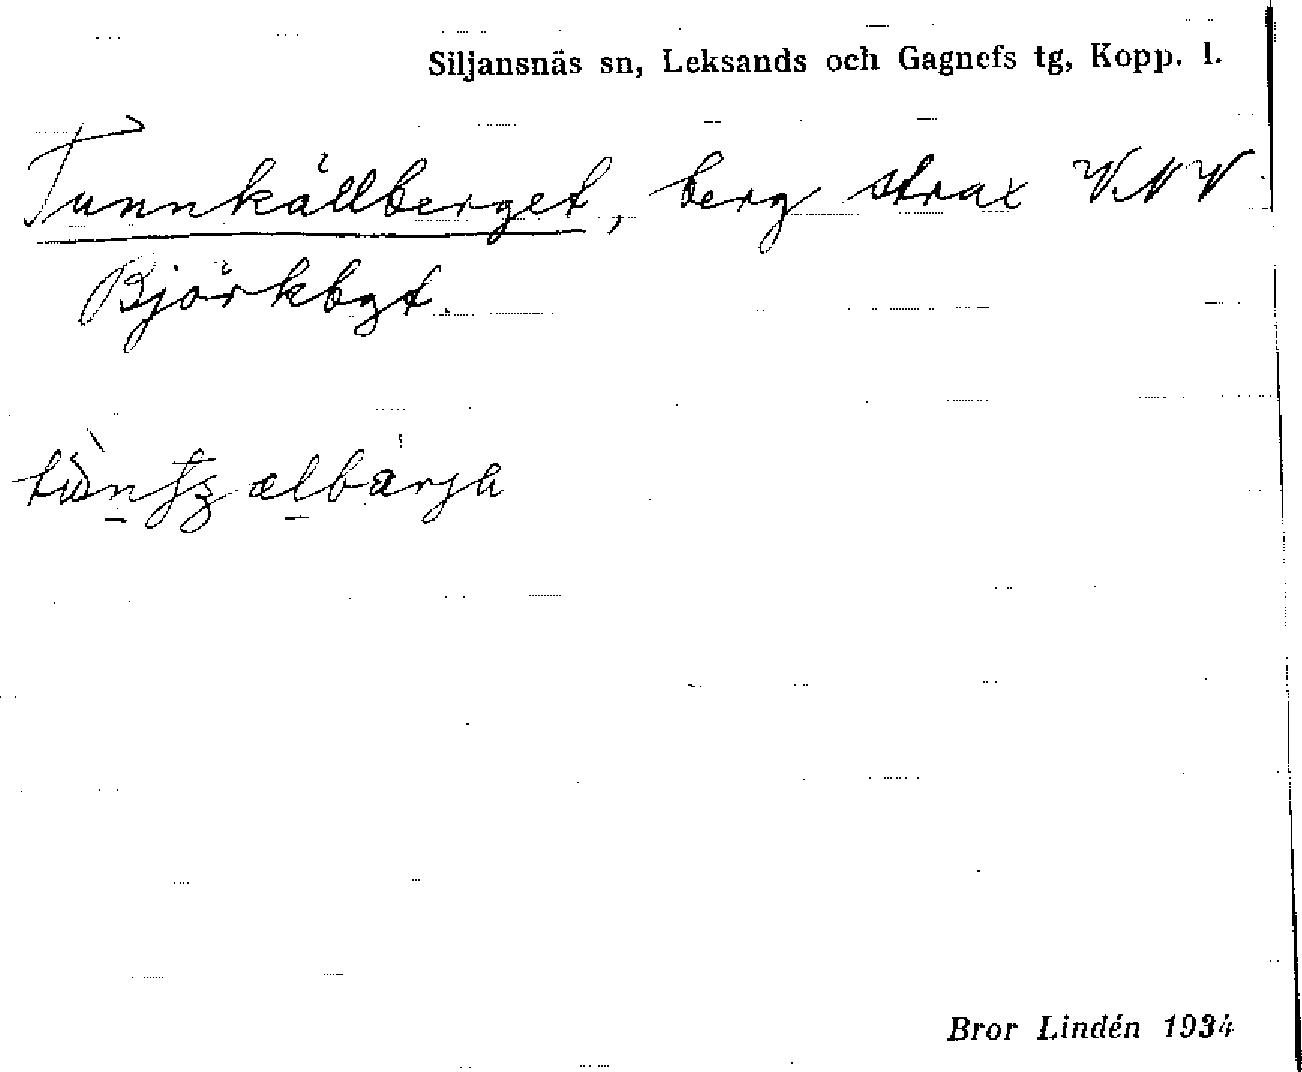 Siljansnäs sn, Leksands och Gagnefs tg, Kopp. l.
Tunnkällberget, berg strax V.N V.
Björkbgt.
Bror Lindén 1934